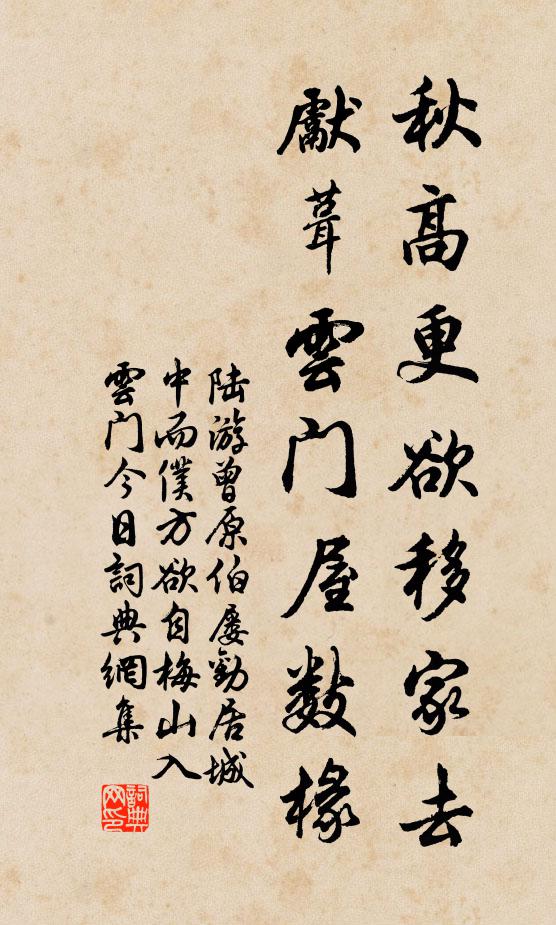 秋高更欲移家去
獻葺雲门屋数椽
陆游曾原伯屡勸居城
中而僕方欲自梅山入
雲门今日詞典網集
詞典网印